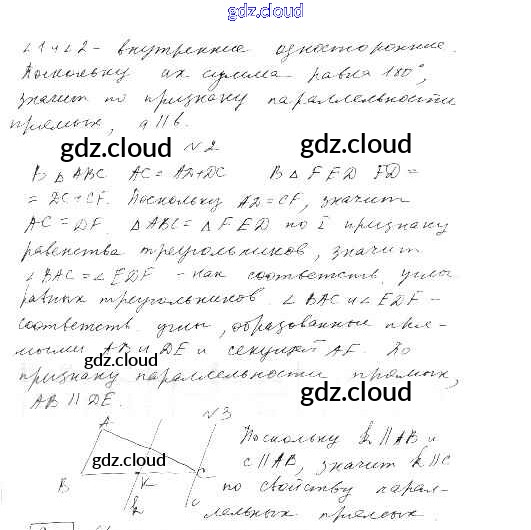 gdz.cloud
∠1 и ∠2 - внутренние односторонние.
Поскольку их сумма равна 180°,
значит по признаку параллельности
прямых, a∥b.
gdz.cloud
N2
gdz.cloud
В △ ABC AC = AD+DC В △ FED FD =
= DC+CF. Поскольку AD=CF, значит
AC = DF. △ ABC = △ FED по I признаку
равенства треугольников, значит
∠ BAC = ∠ EDF - как соответств. углы
равных треугольников. ∠ BAC и ∠ EDF -
соответств. углы, образованные пря-
мыми AB и DE и секущей AF. По
gdz.cloud
признаку параллельности прямых,
AB ∥ DE.
gdz.cloud
N3
A
Поскольку k ∥ AB и
gdz.cloud
c ∥ AB, значит k ∥ c
B K C
по свойству парал-
k c
лельных прямых.